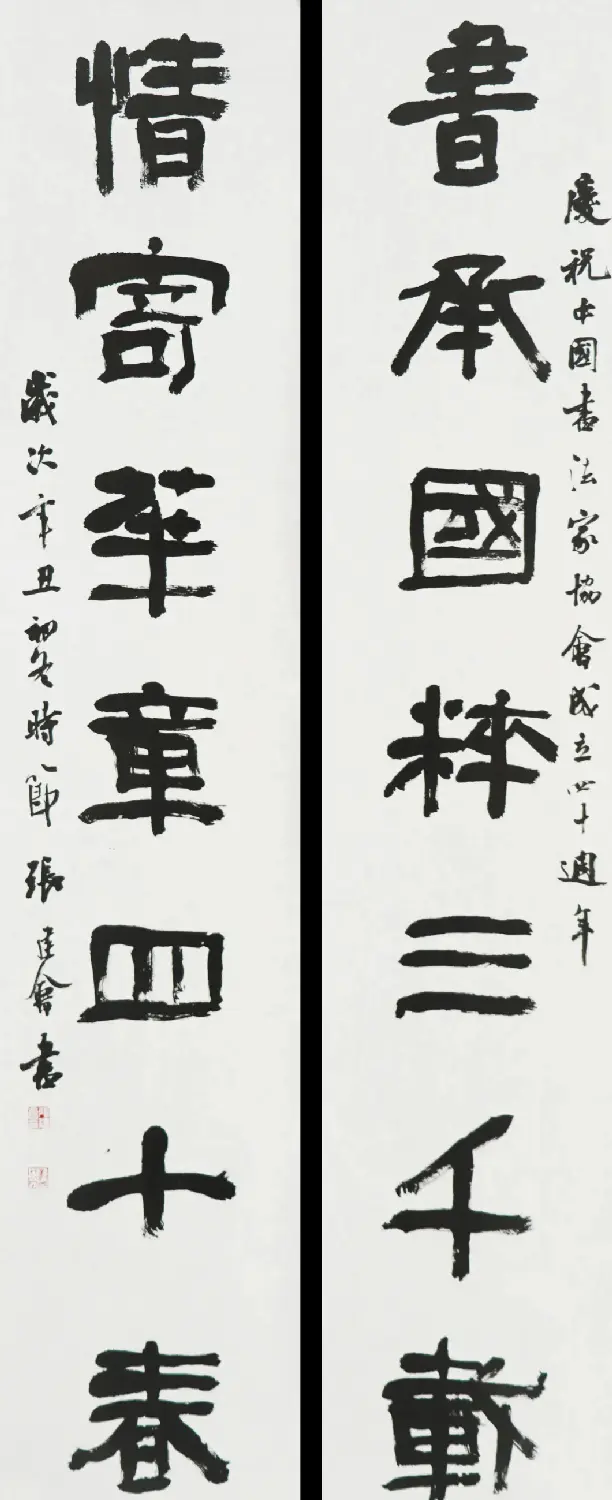 慶祝中國書法家協會成立四十週年
書承國粹三千載
情寄華章四十春
歲次辛丑初冬時節張建會書